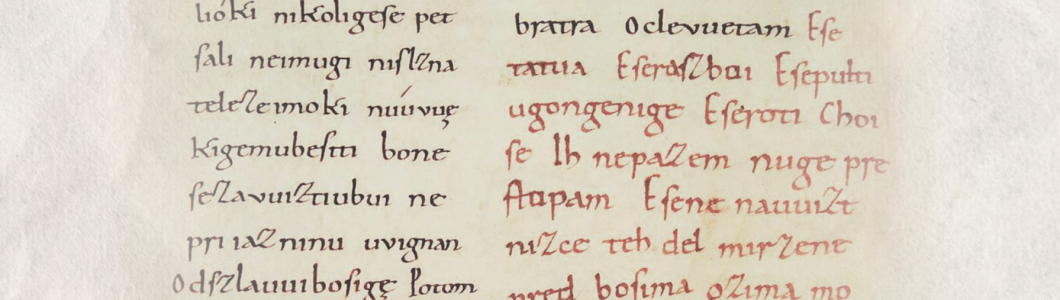 lióki nikoligeſe pet
ſali neimugi niſlzna
telezeimoki nuúvuę
kigemubeſiti bone
ſezavuiztiubui ne
priiazninu uvignan
Odſzlauuiboſigę Potom
bratra Oclevuetam Eſe
tatua Eſeraſzboi Eſepulti
ugongenige Eſeroti Choi
ſe Ih nepazem nuge pre
ſtopam Eſene nauuizt
nizce teh del mirzene
pred boſima ozima mo